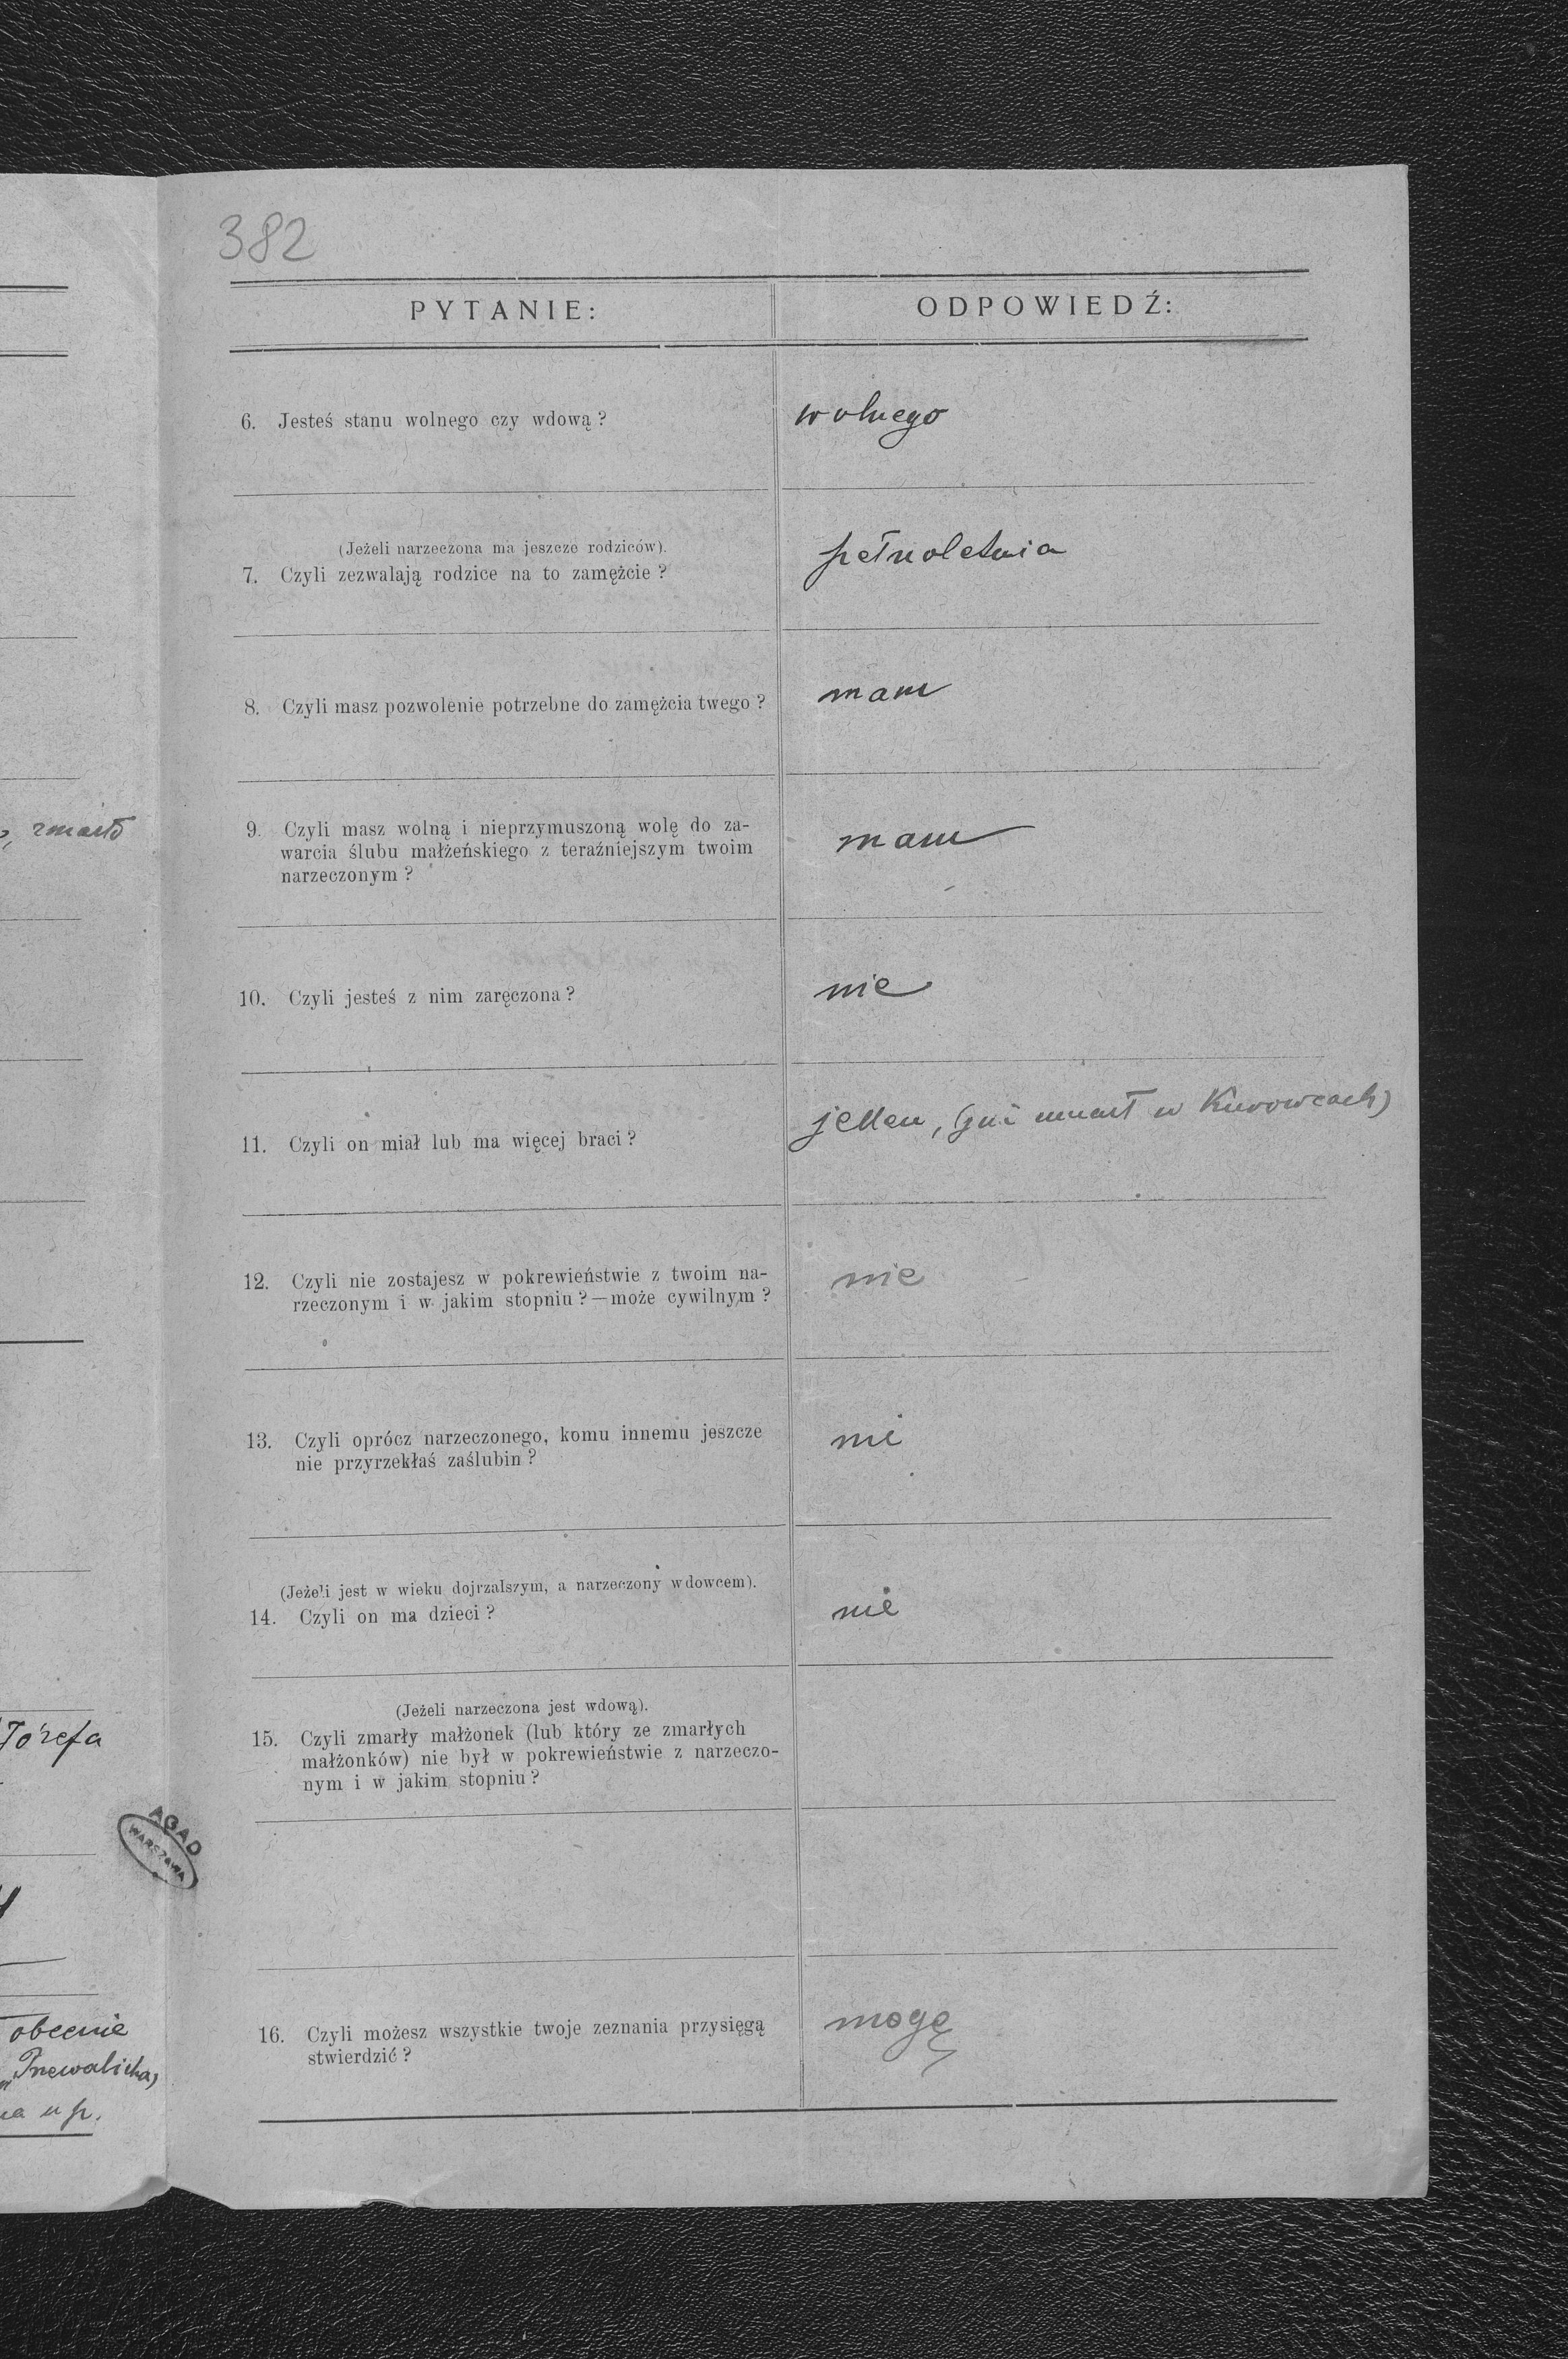 382
PYTANIE:
ODPOWIEDŹ:
6. Jesteś stanu wolnego czy wdową?
wolnego
(Jeżeli narzeczona ma jeszcze rodziców).
7. Czyli zezwalają rodzice na to zamężcie?
pełnoletnia
8. Czyli masz pozwolenie potrzebne do zamężcia twego?
mam
9. Czyli masz wolną i nieprzymuszoną wolę do za-
warcia ślubu małżeńskiego z teraźniejszym twoim
narzeczonym?
mam
10. Czyli jesteś z nim zaręczona?
nie
11. Czyli on miał lub ma więcej braci?
jeden, (już umarł w Kurowcach)
12. Czyli nie zostajesz w pokrewieństwie z twoim na-
rzeczonym i w jakim stopniu?—może cywilnym?
nie
13. Czyli oprócz narzeczonego, komu innemu jeszcze
nie przyrzekłaś zaślubin?
nie
(Jeżeli jest w wieku dojrzalszym, a narzeczony wdowcem).
14. Czyli on ma dzieci?
nie
(Jeżeli narzeczona jest wdową).
15. Czyli zmarły małżonek (lub który ze zmarłych
małżonków) nie był w pokrewieństwie z narzeczo-
nym i w jakim stopniu?
16. Czyli możesz wszystkie twoje zeznania przysięgą
stwierdzić?
mogę
zmarło
Józefa
AGAD
WARSZAWA
obecnie